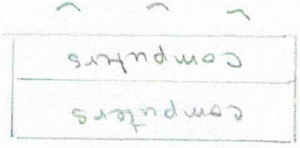 computers
computers